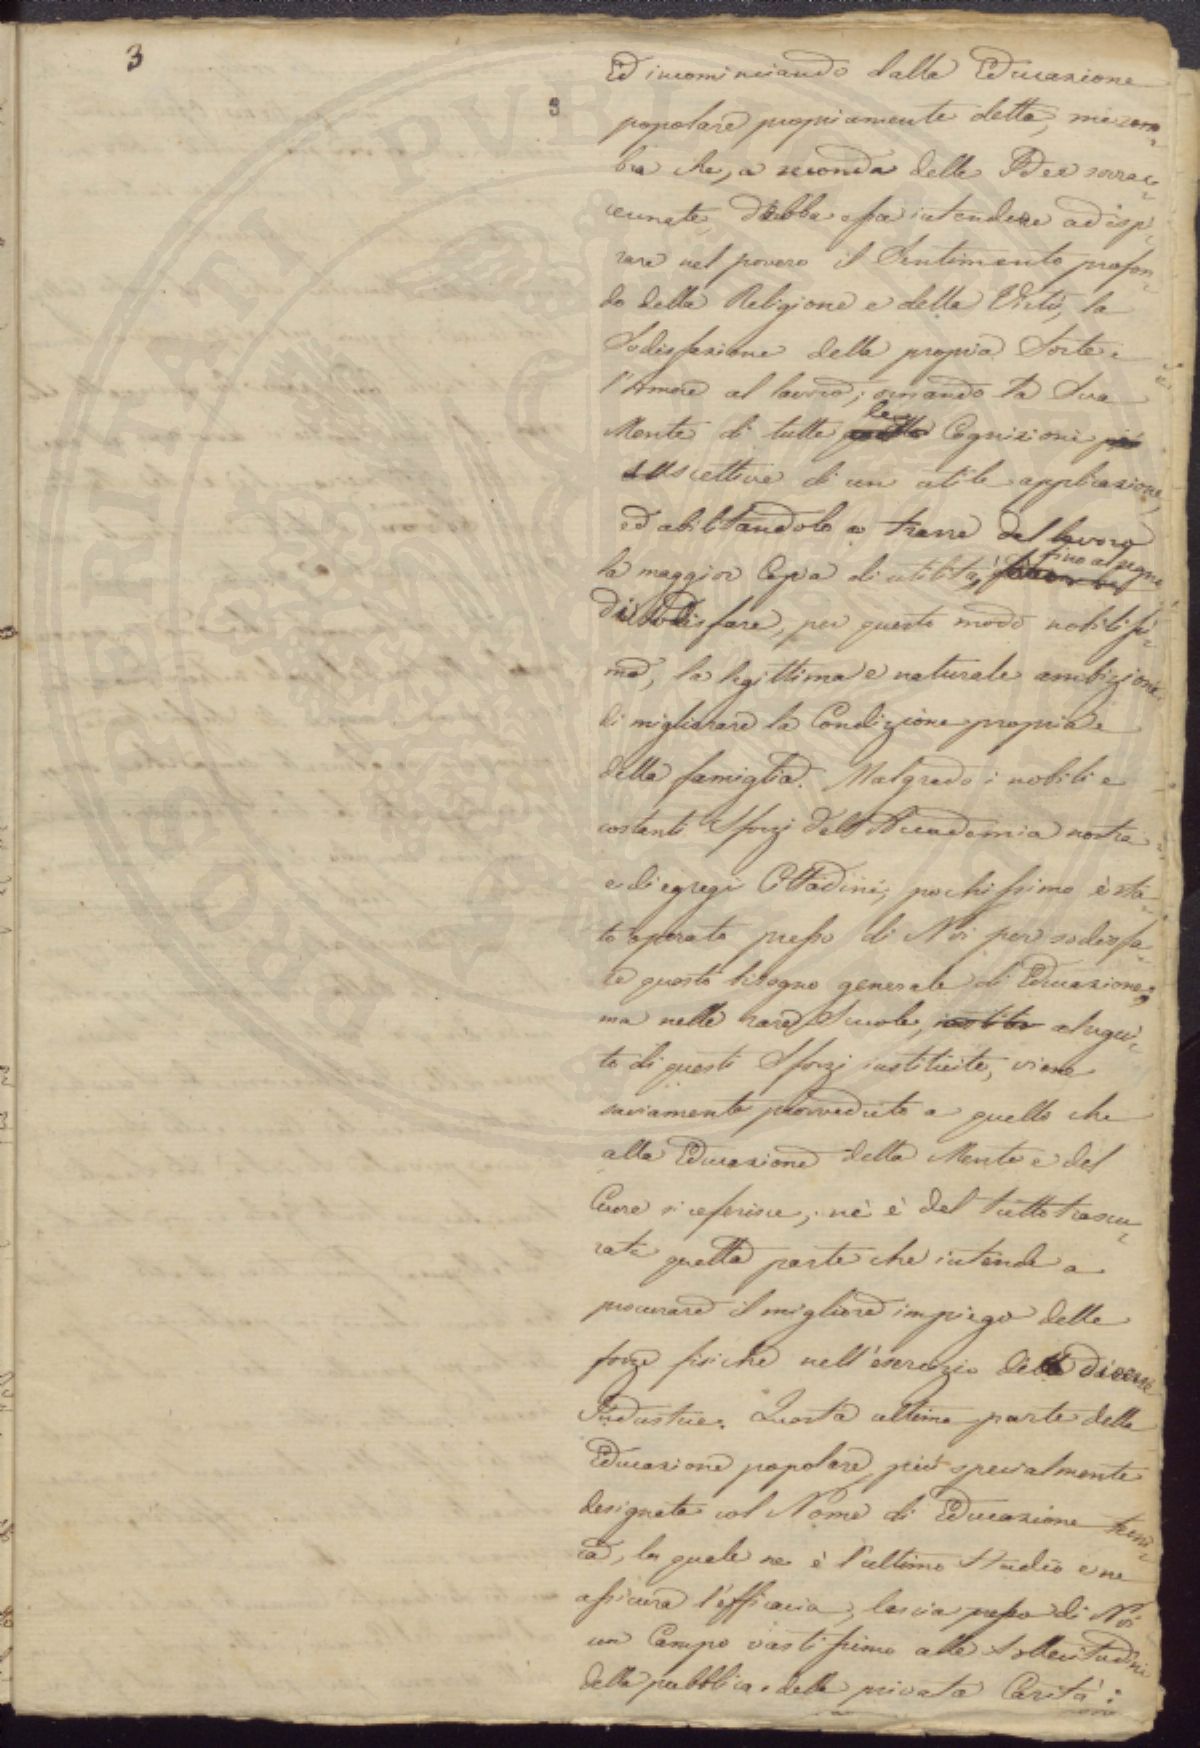 3
3
Ed incominciando dalla Educazione
popolare propriamente detta, mi sem-
bra che, a seconda delle Idee sovrac-
cennate, debba essa intendere ad ispi-
rare nel povero il Sentimento profon-
do della Religione e della Virtù, la
Sodisfazione della propria Sorte e
l'Amore al lavoro; ornando la Sua
le
Mente di tutte quelle Cognizioni più
suscettive di un utile applicazione,
ed abilitandolo a trarre dal lavoro
fino al segno
la maggior Copia di utilità,
di sodisfare, per questo modo nobilissi-
mo, la legittima e naturale ambizione
di migliorare la Condizione propria e
della famiglia. Malgrado i nobili e
costanti Sforzi dell'Accademia nostra
e di egregi Cittadini, pochissimo è sta-
to operato presso di Noi per sodisfa-
re questo bisogno generale di Educazione;
ma nelle rare Scuole, al segui-
to di questi Sforzi instituite, viene
saviamente provveduto a quello che
alla Educazione della Mente e del
Cuore si referisce; nè è del tutto trascu-
rata quella parte che intende a
procurare il migliore impiego delle
forze fisiche nell'esercizio delle diverse
Industrie. Questa ultima parte della
Educazione popolare, più specialmente
designata col Nome di Educazione tecni-
ca, la quale ne è l'ultimo Studio e ne
assicura l'efficacia, lascia presso di Noi
un Campo vastissimo alle Sollecitudini
della pubblica e della privata Carità;